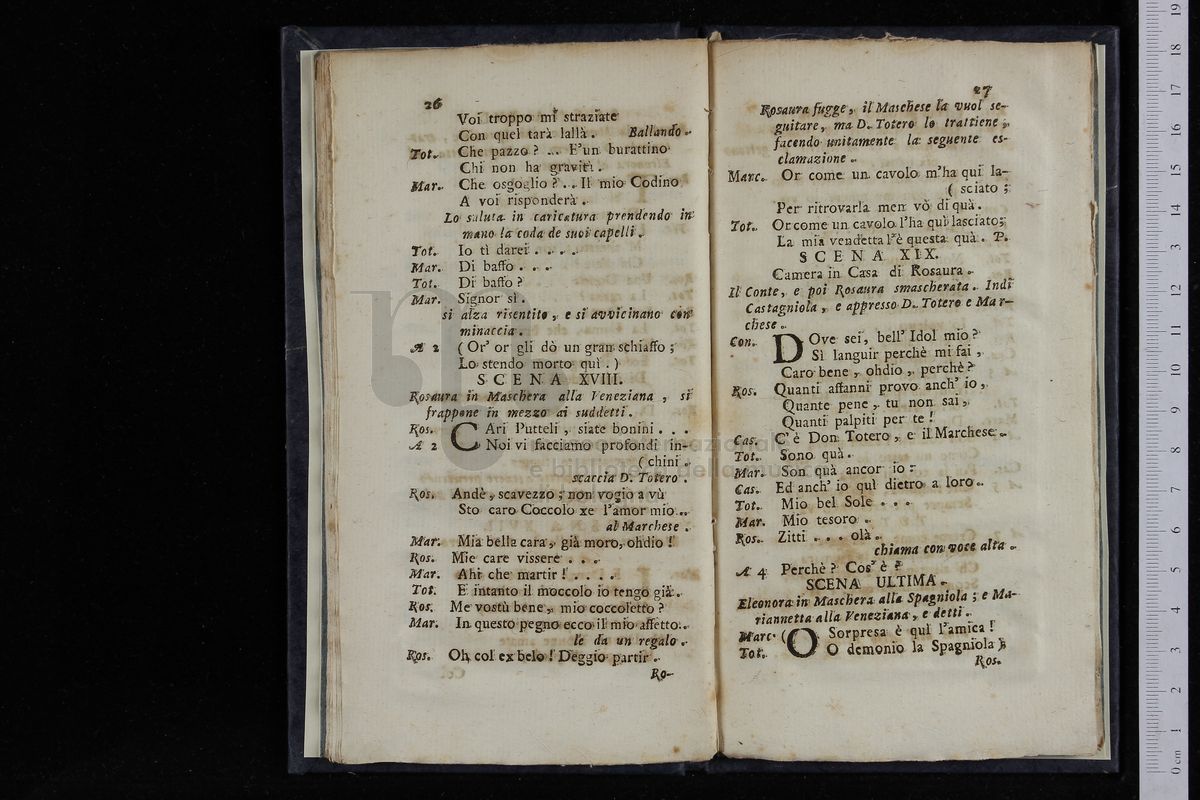 26
Voi troppo mi straziate
Con quel tarà lallà. Ballando.
Tot. Che pazzo? ... E'un burattino
Chi non ha gravità.
Mar. Che osgoglio? .. Il mio Codino
A voi risponderà.
Lo saluta in caricatura prendendo in
mano la coda de suoi capelli.
Tot. Io tì darei . . . .
Mar. Di baffo . . .
Tot. Di baffo?
Mar. Signor sì.
si alza risentito, e si avvicinano con
minaccia.
A 2 (Or' or gli dò un gran schiaffo;
Lo stendo morto quì.)
SCENA XVIII.
Rosaura in Maschera alla Veneziana, si
frappone in mezzo ai suddetti.
Ros. CAri Putteli, siate bonini . . .
A 2 Noi vi facciamo profondi in-
(chini.
scaccia D. Totero.
Ros. Andè, scavezzo; non vogio a vù
Sto caro Coccolo xe l'amor mio..
al Marchese.
Mar. Mia bella cara, già moro, ohdio!
Ros. Mie care vissere . . .
Mar. Ahi che martir! . . . .
Tot. E intanto il moccolo io tengo già.
Ros. Me vostù bene, mio coccoletto?
Mar. In questo pegno ecco il mio affetto..
le da un regalo.
Ros. Oh col ex belo! Deggio partir.
Ro-
27
Rosaura fugge, il Maschese la vuol se-
guitare, ma D. Totero lo trattiene;
facendo unitamente la seguente es-
clamazione.
Marc. Or come un cavolo m'ha quì la-
(sciato;
Per ritrovarla men vò di quà.
Tot. Or come un cavolo l'ha quì lasciato;
La mia vendetta l'è questa quà. P.
SCENA XIX.
Camera in Casa di Rosaura.
Il Conte, e poi Rosaura smascherata. Indi
Castagniola, e appresso D. Totero e Mar-
chese.
Con. DOve sei, bell' Idol mio?
Sì languir perchè mi fai,
Caro bene, ohdio, perchè?
Ros. Quanti affanni provo anch' io,
Quante pene, tu non sai,
Quanti palpiti per te!
Cas. C' è Don Totero, e il Marchese.
Tot. Sono quà.
Mar. Son quà ancor io:
Cas. Ed anch' io quì dietro a loro.
Tot. Mio bel Sole . . .
Mar. Mio tesoro.
Ros. Zitti . . . olà.
chiama con voce alta.
A 4 Perchè? Cos' è?
SCENA ULTIMA.
Eleonora in Maschera alla Spagniola; e Ma-
riannetta alla Veneziana, e detti.
Marc. (O Sorpresa è quì l'amica!
Tot. O demonio la Spagniola)
Ros.